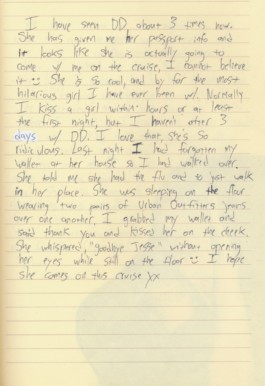 I have seen DD about 3 times now.
She has given me her passport info and
it looks like she is actually going to
come w/ me on the cruise, I cannot believe
it :) She is so cool, and by far the most
hilarious girl I have ever been w/. Normally
I kiss a girl within hours or at least
the first night, but I haven't after 3
days w/ DD. I love that, she's so
ridiculous. Last night I had forgotten my
wallet at her house so I had walked over.
She told me she had the flu and to just walk
in her place. She was sleeping on the floor
wearing two pairs of Urban Outfitters jeans
over one another. I grabbed my wallet and
said thank you and kissed her on the cheek.
She whispered, "goodbye Jesse" without opening
her eyes while still on the floor :) I hope
she comes on this cruise